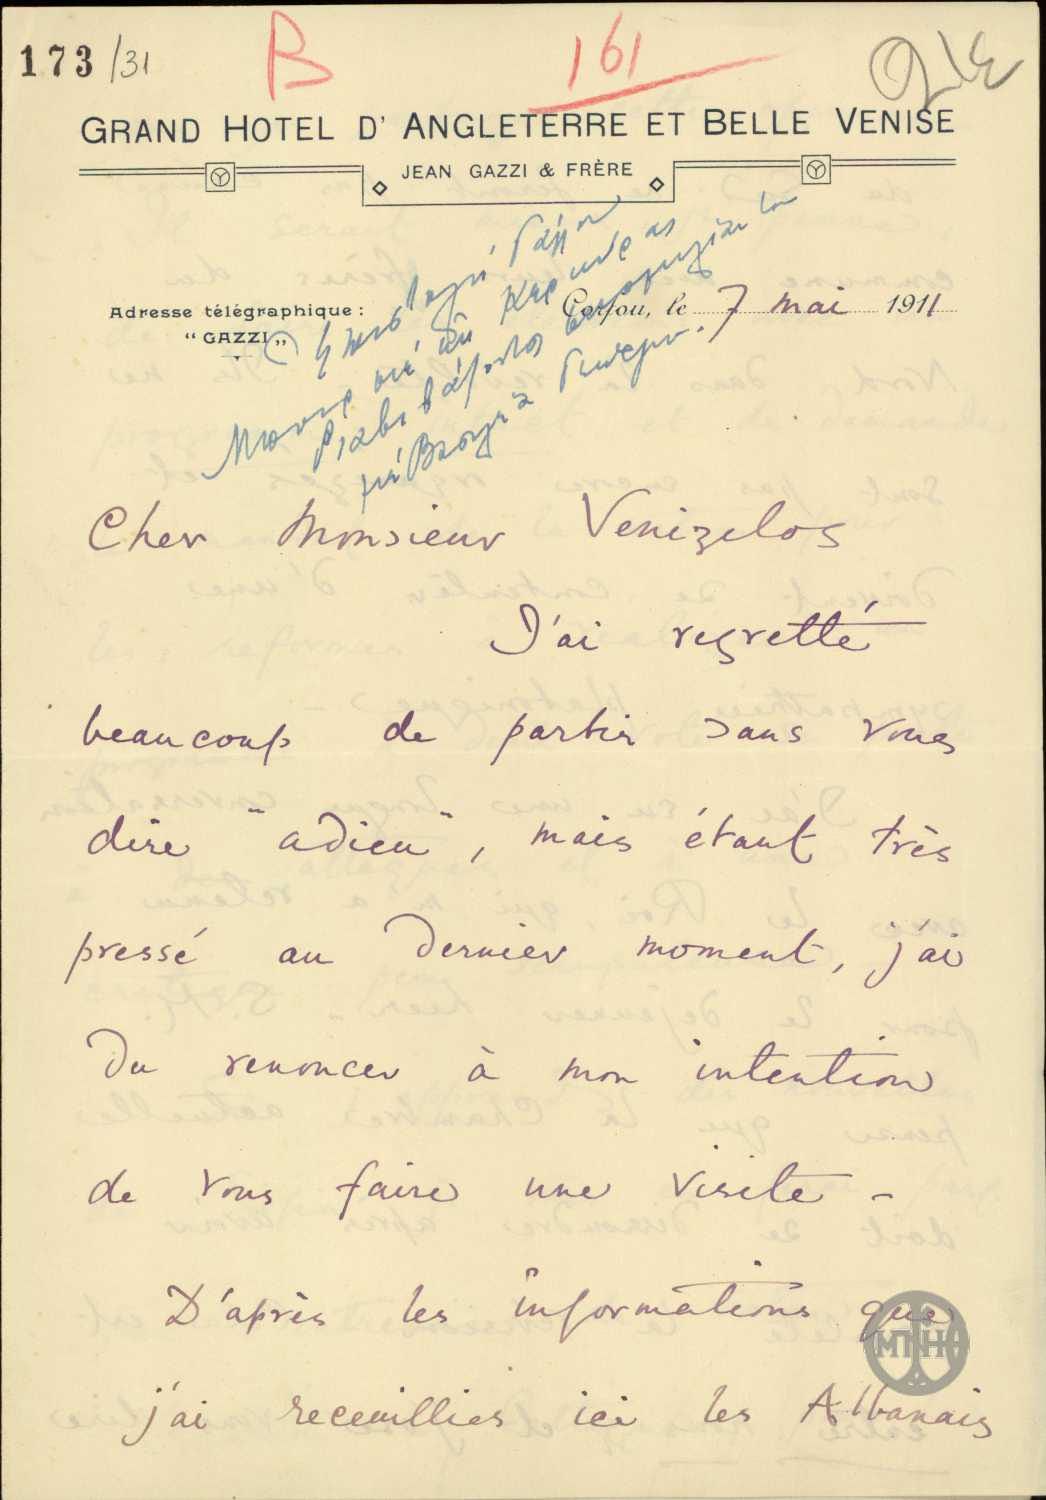 173/31
B
161
GRAND HOTEL D'ANGLETERRE ET BELLE VENISE
JEAN GAZZI & FRÈRE
Adresse télégraphique:
"GAZZI"
Corfou, le 7 mai 1911
Cher Monsieur Venizelos
J'ai regretté
beaucoup de partir sans vous
dire "adieu", mais étant très
pressé au dernier moment, j'ai
du renoncer à mon intention
de vous faire une visite -
D'après les informations que
j'ai receuillies ici les Albanais